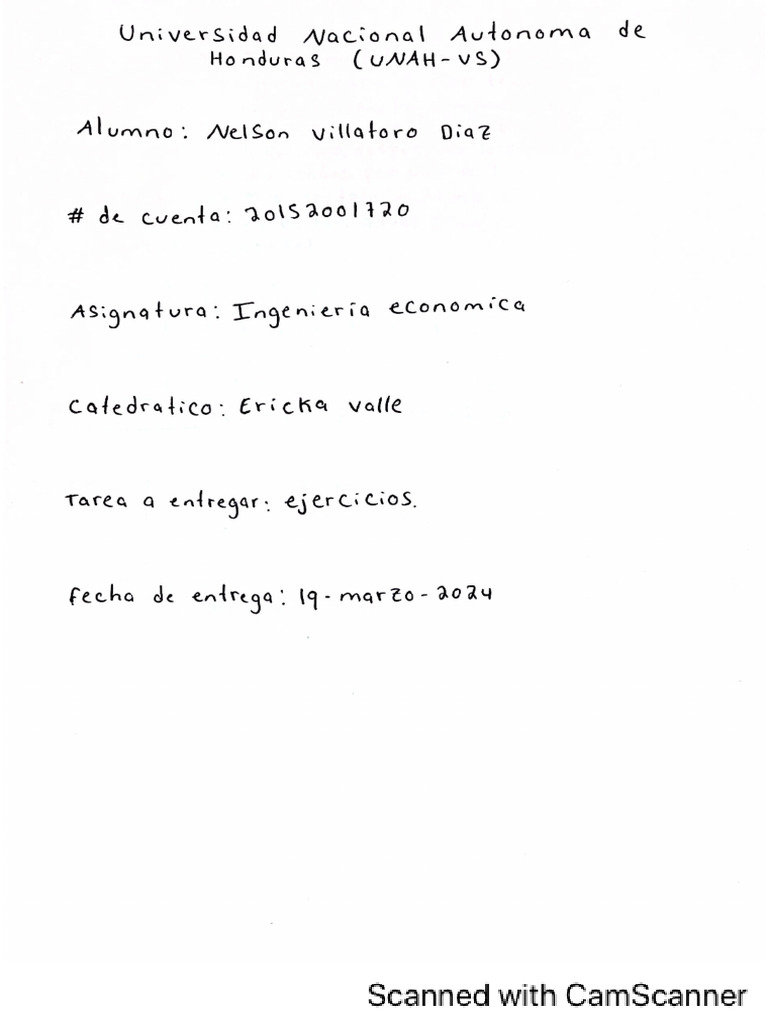 Universidad Nacional Autonoma de
Honduras (UNAH-VS)
Alumno: Nelson Villatoro Diaz
# de cuenta: 20152001720
Asignatura: Ingeniería economica
Catedratico: Ericka Valle
Tarea a entregar: ejercicios.
Fecha de entrega: 19-marzo-2024
Scanned with CamScanner